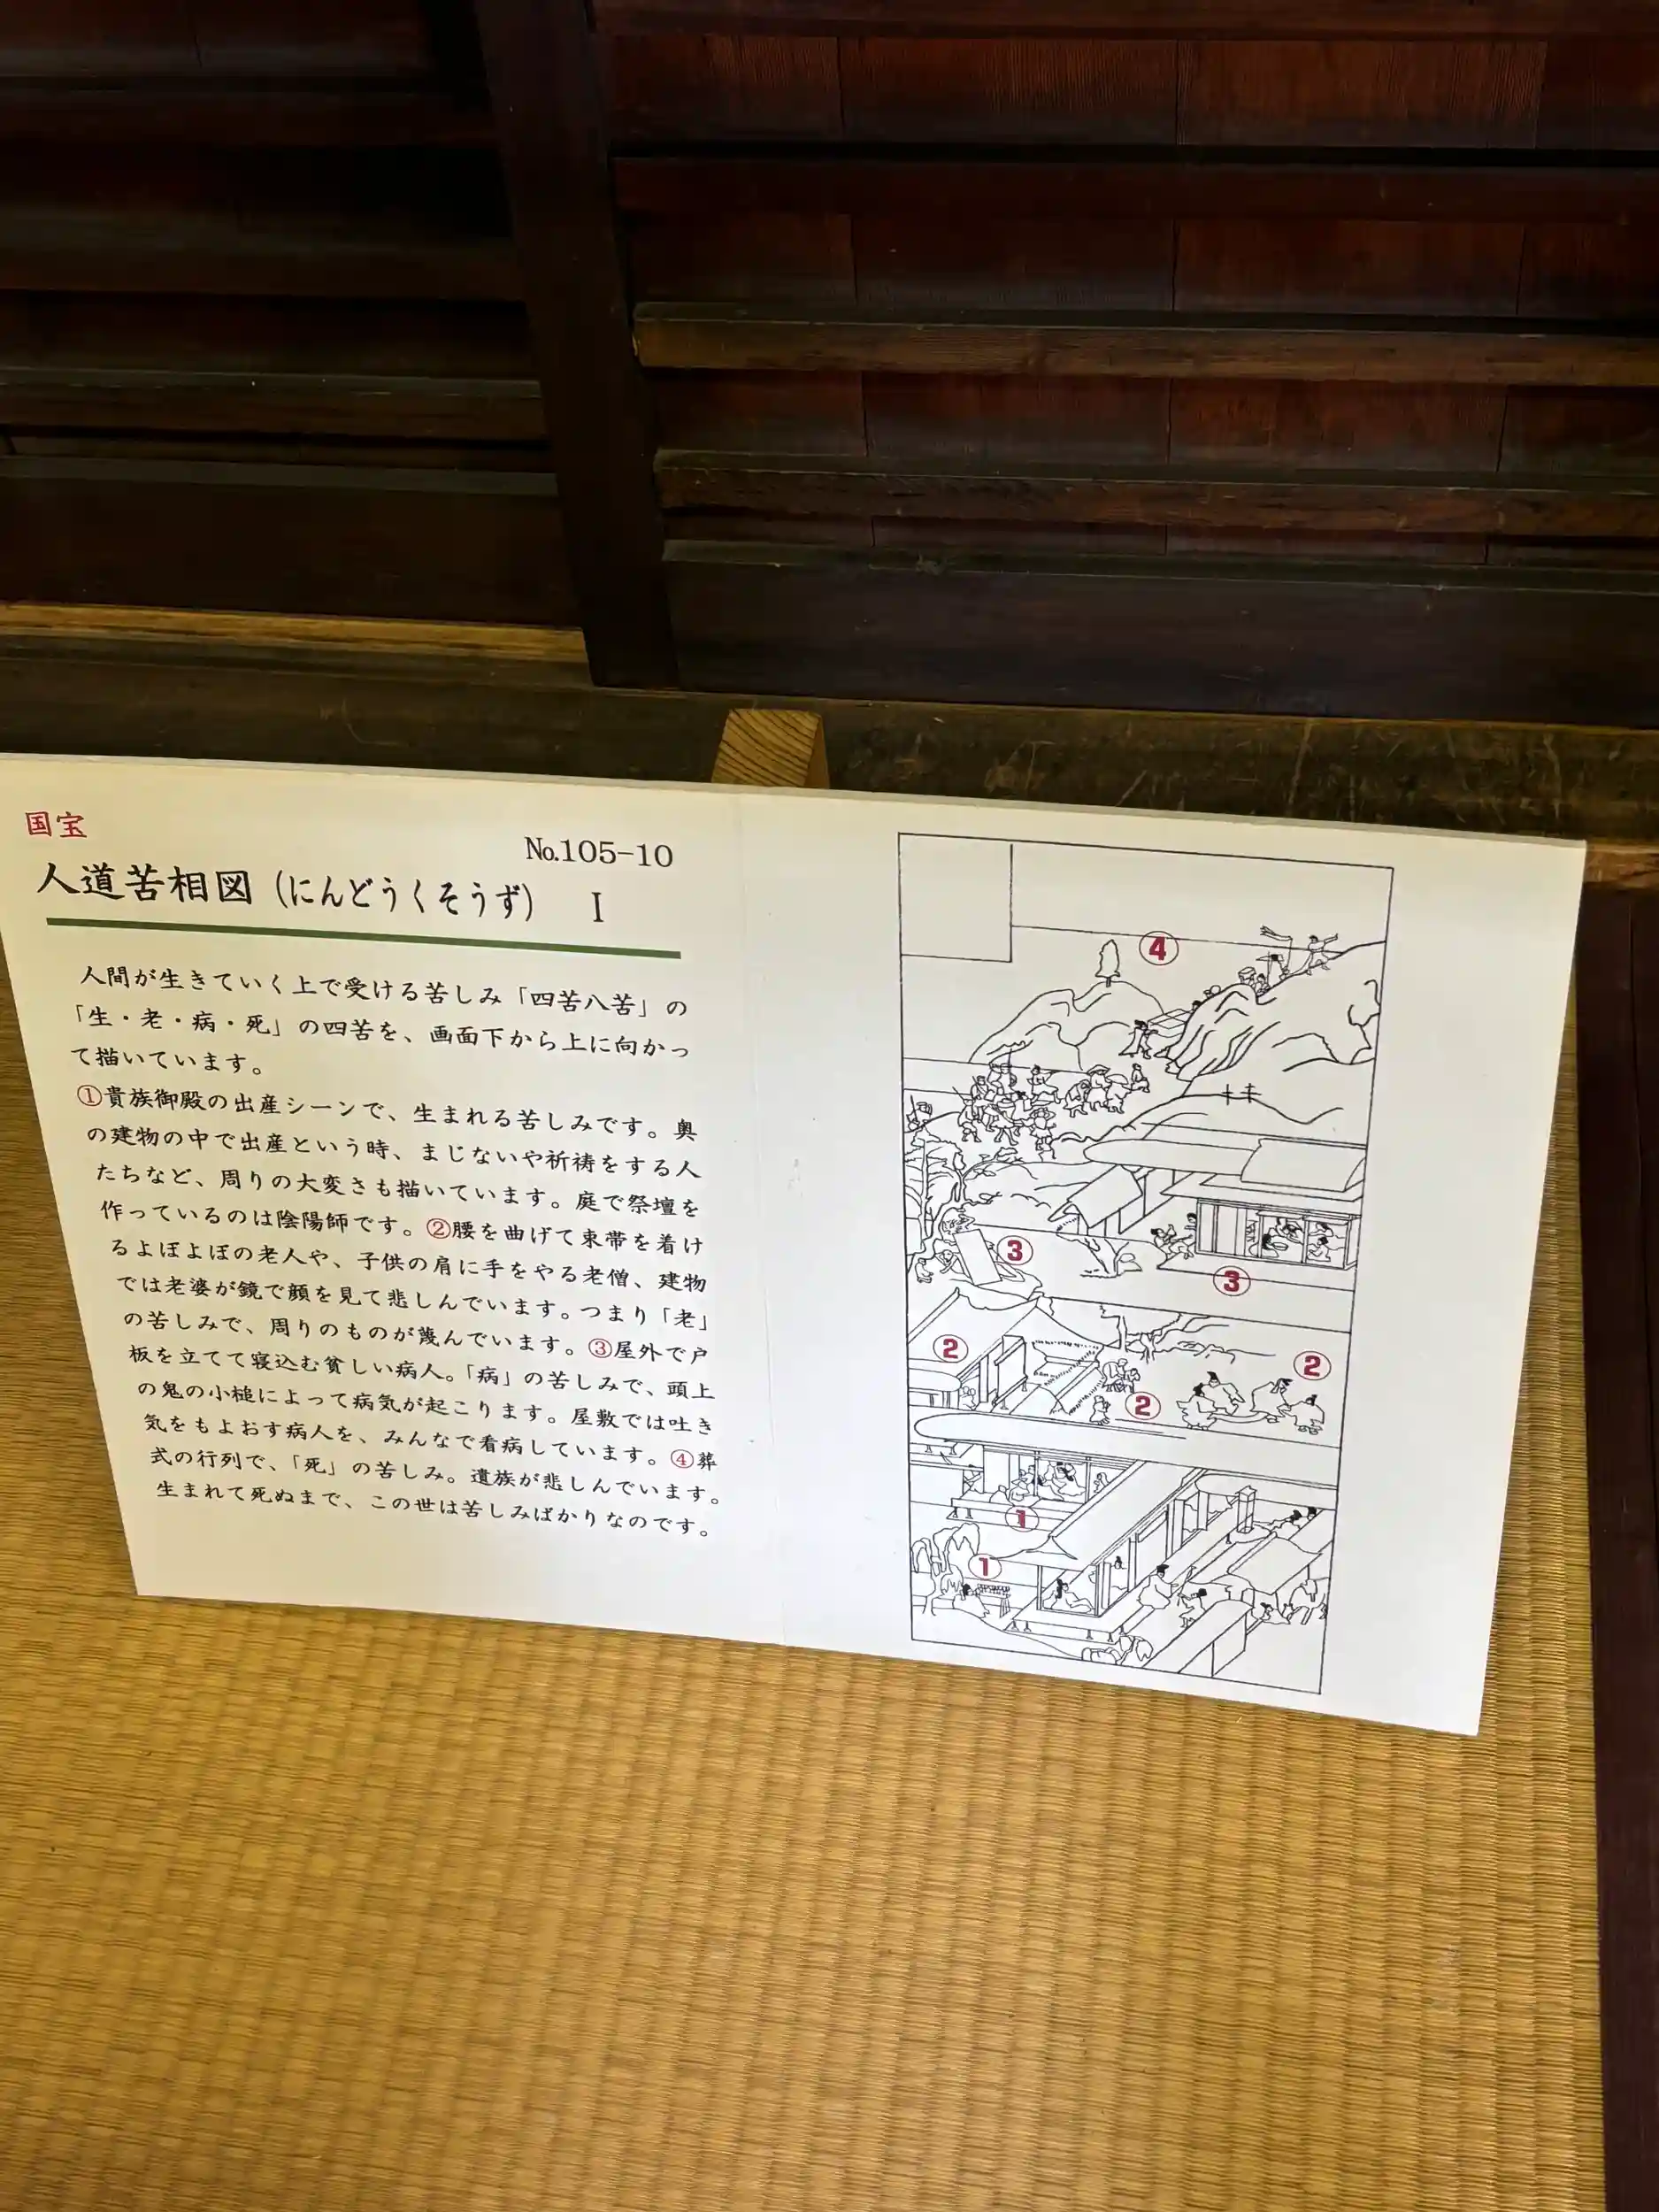 国宝
No.105-10
人道苦相図（にんどうくそうず） I
人間が生きていく上で受ける苦しみ「四苦八苦」の
「生・老・病・死」の四苦を、画面下から上に向かっ
て描いています。
①貴族御殿の出産シーンで、生まれる苦しみです。奥
の建物の中で出産という時、まじないや祈祷をする人
たちなど、周りの大変さも描いています。庭で祭壇を
作っているのは陰陽師です。②腰を曲げて束帯を着け
るよぼよぼの老人や、子供の肩に手をやる老僧、建物
では老婆が鏡で顔を見て悲しんでいます。つまり「老」
の苦しみで、周りのものが蔑んでいます。③屋外で戸
板を立てて寝込む貧しい病人。「病」の苦しみで、頭上
の鬼の小槌によって病気が起こります。屋敷では吐き
気をもよおす病人を、みんなで看病しています。④葬
式の行列で、「死」の苦しみ。遺族が悲しんでいます。
生まれて死ぬまで、この世は苦しみばかりなのです。
④
③
③
②
②
②
①
①